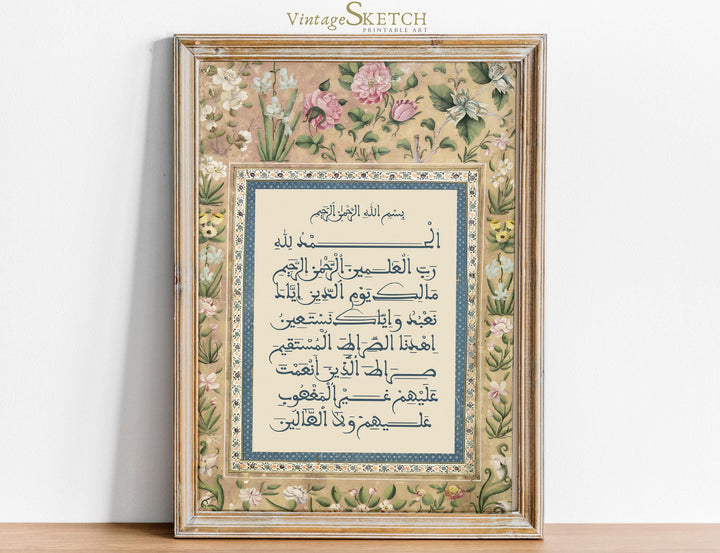 VintageSKETCH
PRINTABLE ART
بِسْمِ اللهِ الرَّحْمٰنِ الرَّحِيْمِ
الْحَمْدُ لِلّٰهِ
رَبِّ الْعٰلَمِيْنَ الرَّحْمٰنِ الرَّحِيْمِ
مَالِكِ يَوْمِ الدِّيْنِ إِيَّاكَ
نَعْبُدُ وَإِيَّاكَ نَسْتَعِيْنُ
اِهْدِنَا الصِّرَاطَ الْمُسْتَقِيْمَ
صِرَاطَ الَّذِيْنَ أَنْعَمْتَ
عَلَيْهِمْ غَيْرِ الْمَغْضُوْبِ
عَلَيْهِمْ وَلَا الضَّالِّيْنَ